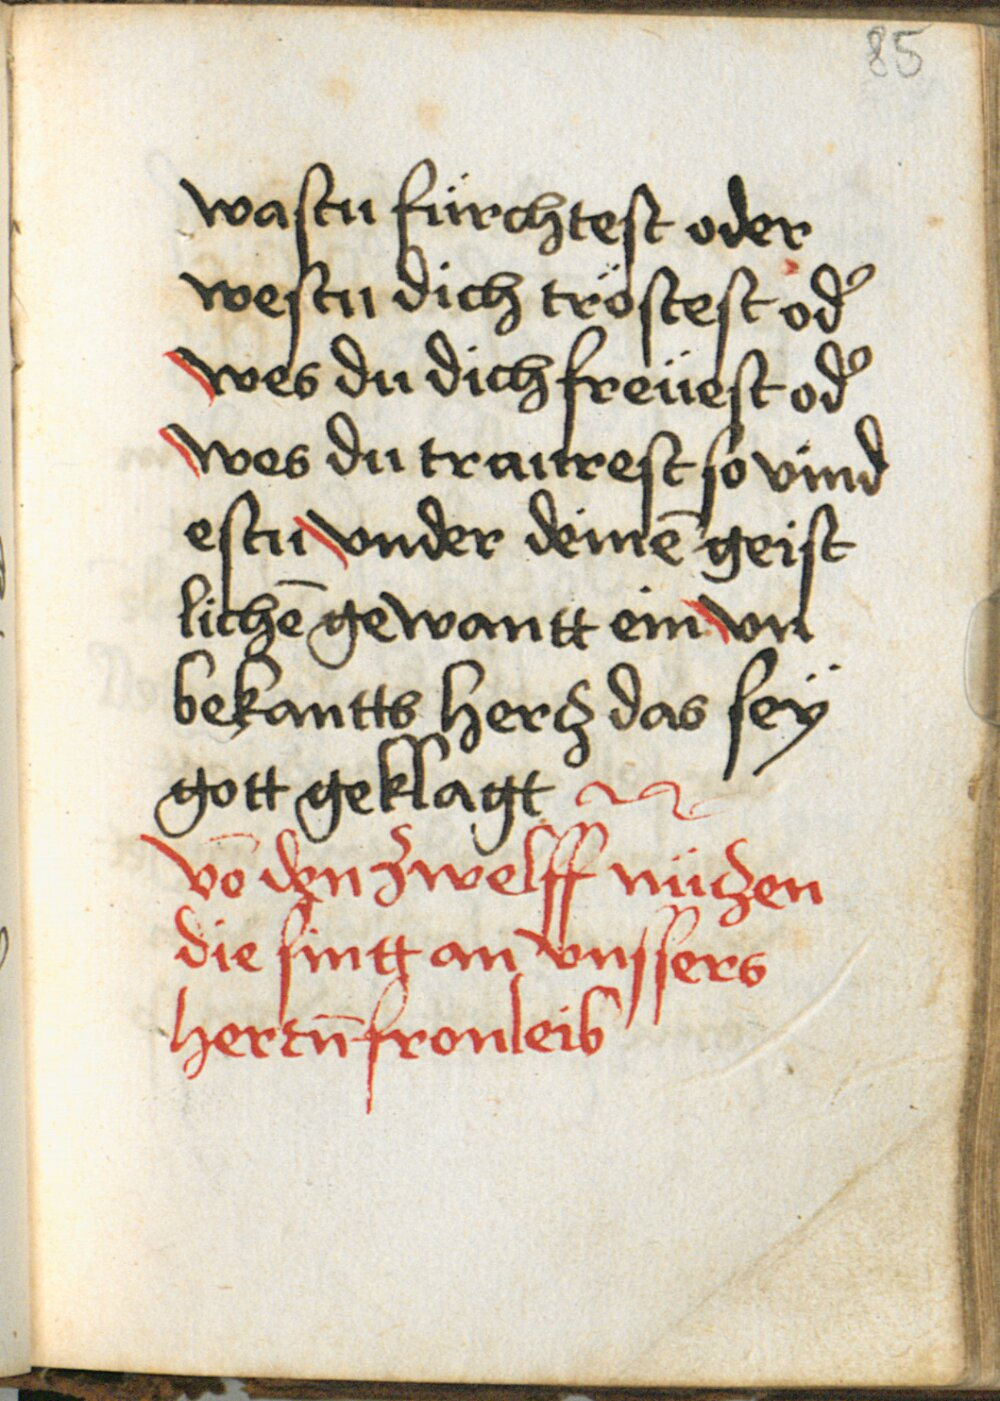 85
wastu fürchtest oder
westu dich tröstest od᷑
wes du dich freüest od᷑
wes du traurest so vind
estu vnder deinē geist
lichē gewantt ein vn
bekantts hertz das seÿ
gott geklagt
vō den zwelff nützen
die sintt an vnssers
hertn̄ fronleib